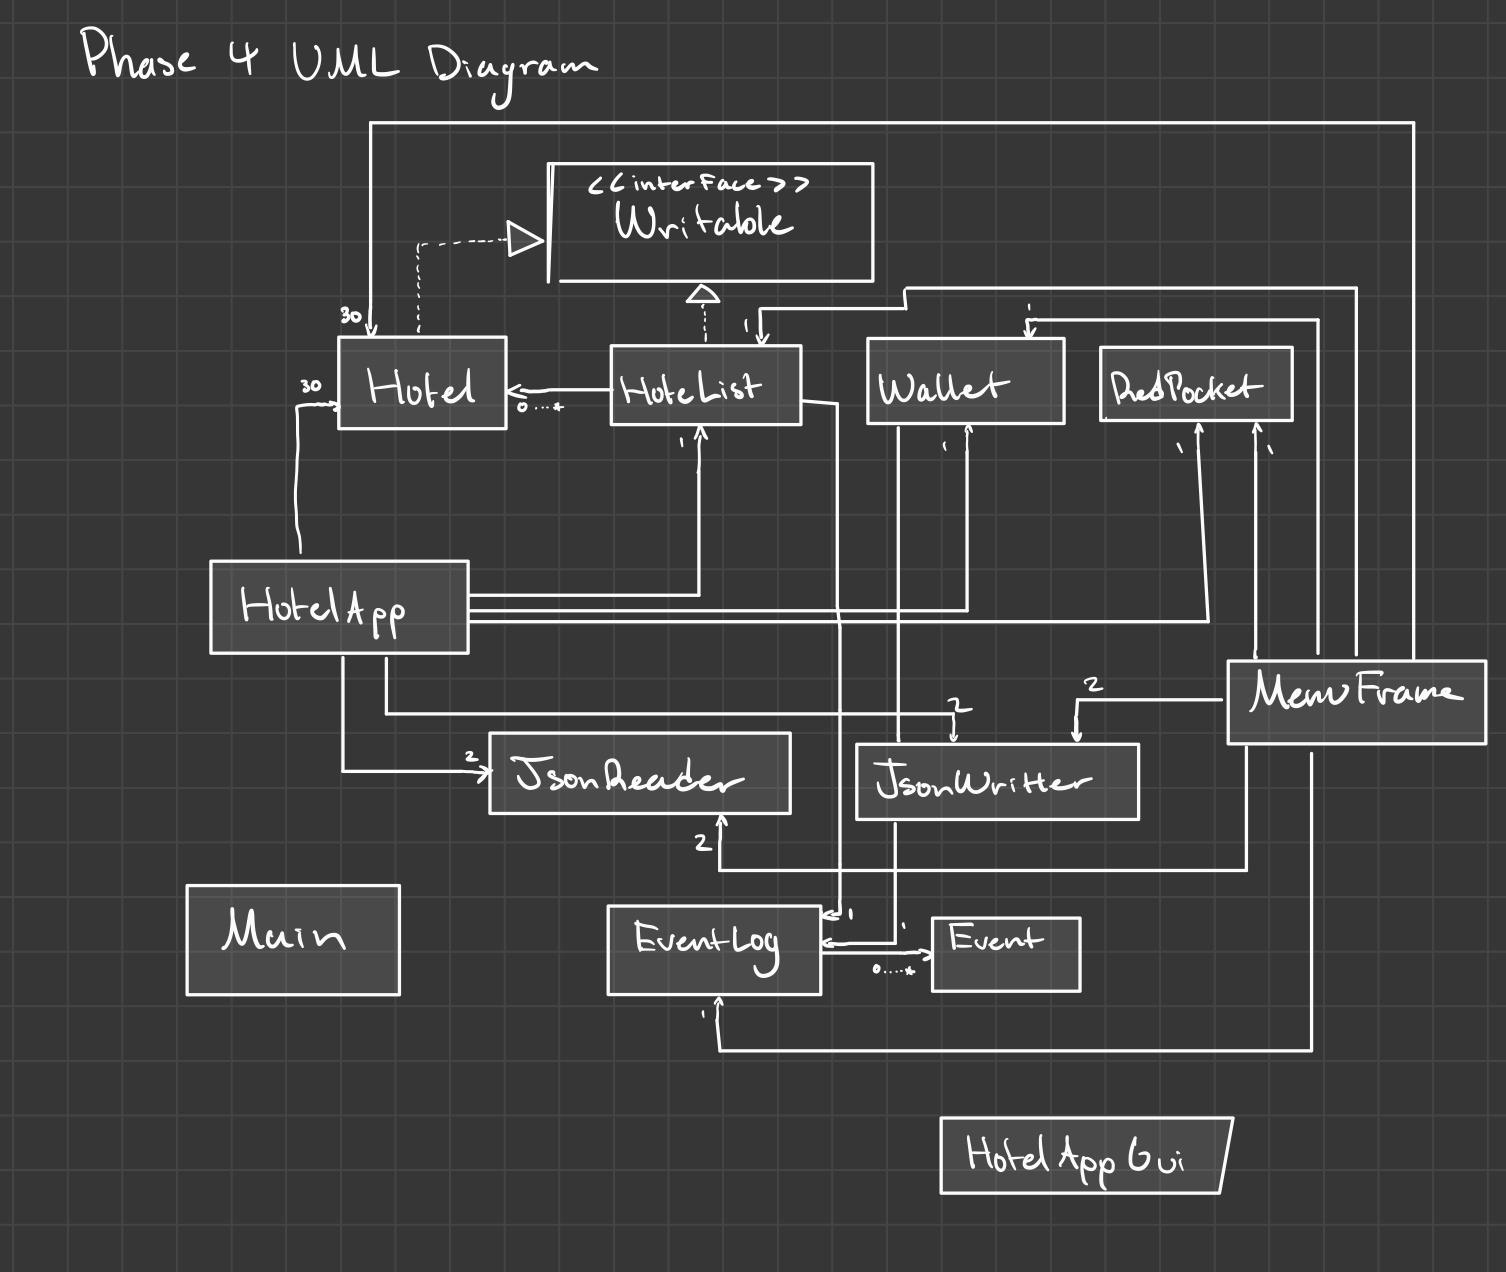 Phase 4 UML Diagram
<<interface>>
Writable
30
1
1
Hotel
HoteList
Wallet
RedPocket
30
0....*
1
1
1
1
HotelApp
2
2
MenuFrame
2
JsonReader
JsonWritter
2
Main
1
EventLog
1
Event
0.....*
1
HotelAppGui